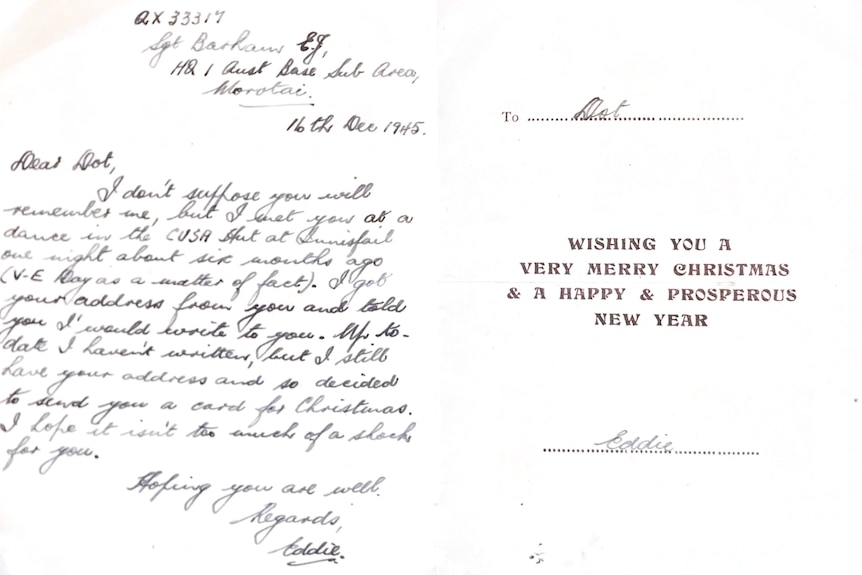 QX 33317
Sgt Barham E.J,
HQ 1 Aust Base Sub Area,
Morotai.
16th Dec 1945.
Dear Dot,
I don't suppose you will
remember me, but I met you at a
dance in the CUSA Hut at Innisfail
one night about six months ago
(V-E Day as a matter of fact). I got
your address from you and told
you I'would write to you. Up to-
date I haven't written, but I still
have your address and so decided
to send you a card for Christmas.
I hope it isn't too much of a shock
for you.
Hoping you are well.
Regards,
Eddie.
To Dot
WISHING YOU A
VERY MERRY CHRISTMAS
& A HAPPY & PROSPEROUS
NEW YEAR
Eddie